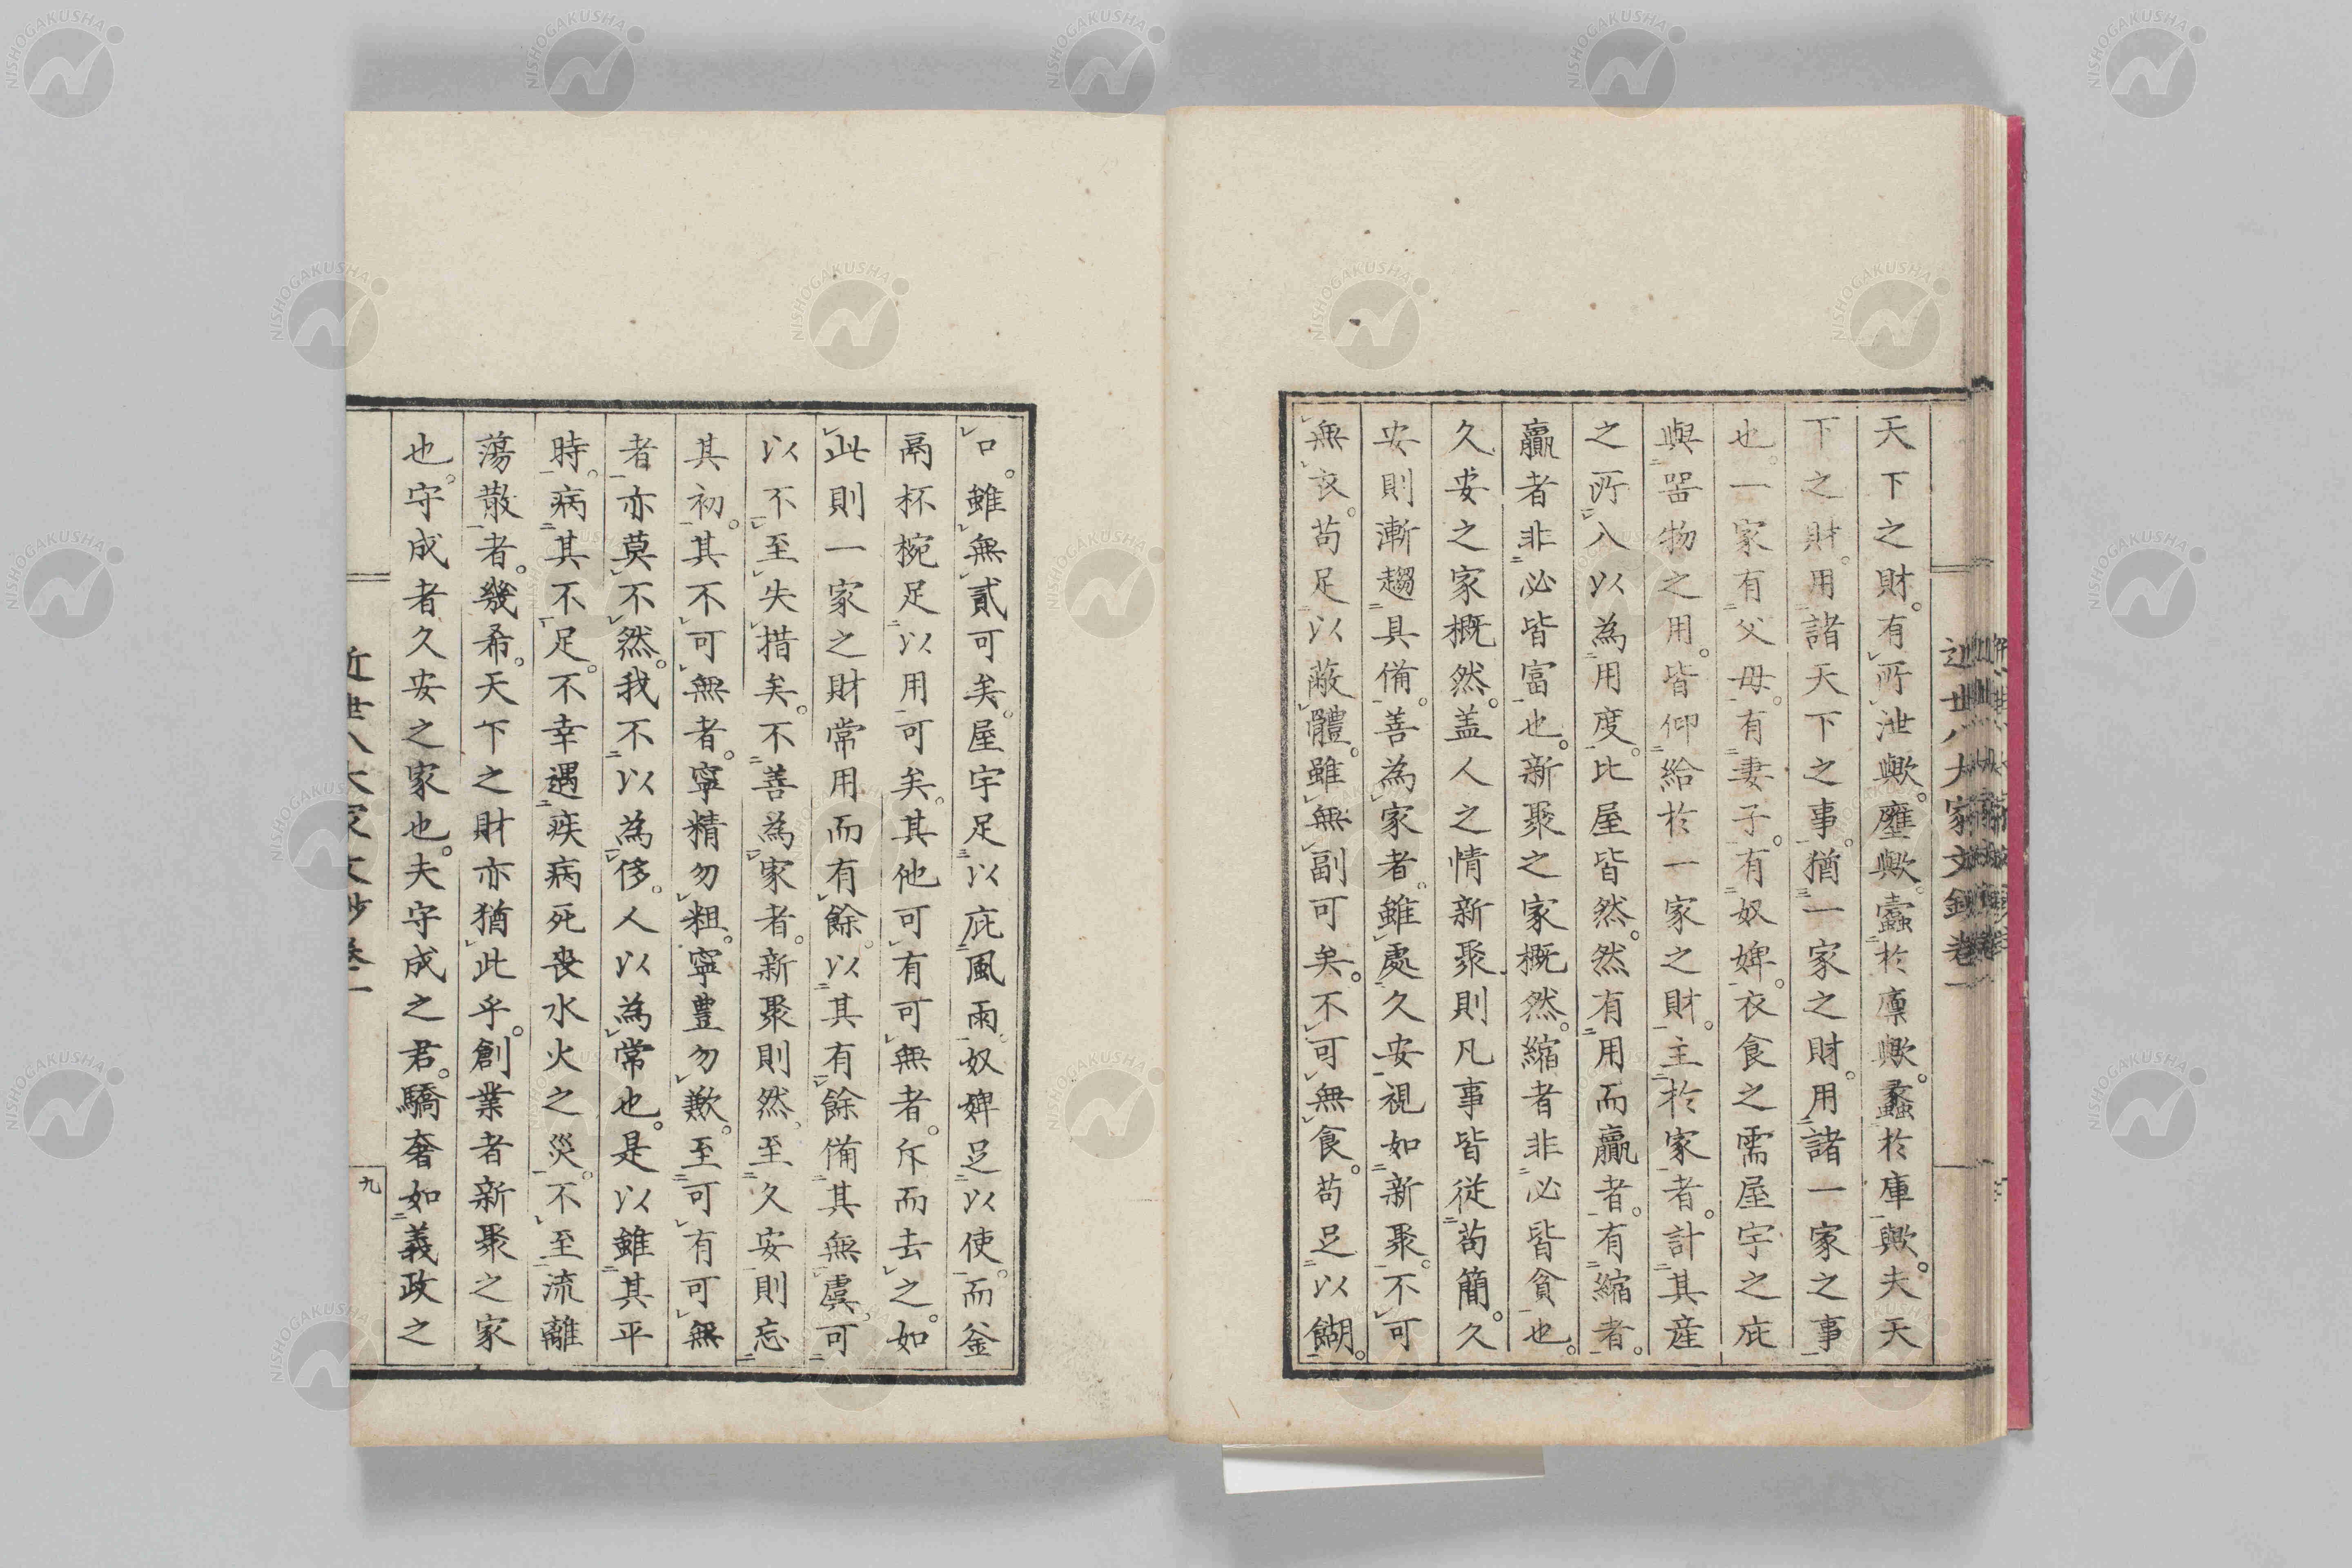 近世八大家文鈔卷一
天下之財。有所泄歟。壅歟。蠹於廩歟。蠧於庫歟。夫天
下之財。用諸天下之事。猶一家之財。用諸一家之事
也。一家有父母。有妻子。有奴婢。衣食之需屋宇之庇
與器物之用。皆仰給於一家之財。主於家者。計其産
之所入以為用度。比屋皆然。然有用而贏者。有縮者。
贏者非必皆富也。新聚之家概然。縮者非必皆貧也。
久安之家概然。盖人之情新聚則凡事皆從苟簡。久
安則漸趨具備。善為家者。雖處久安視如新聚。不可
無衣。苟足以蔽體。雖無副可矣。不可無食。苟足以餬。
口。雖無貳可矣。屋宇足以庇風雨。奴婢足以使。而釜
鬲杯椀足以用可矣。其他可有可無者。斥而去之。如
此則一家之財常用而有餘。以其有餘備其無虞。可
以不至失措矣。不善為家者。新聚則然。至久安則忘
其初。其不可無者。寧精勿粗。寧豊勿歉。至可有可無
者亦莫不然。我不以為侈。人以為常也。是以雖其平
時。病其不足。不幸遇疾病死喪水火之災。不至流離
蕩散者。幾希。天下之財亦猶此乎。創業者新聚之家
也。守成者久安之家也。夫守成之君。驕奢如義政之
近世八大家文鈔卷一
九